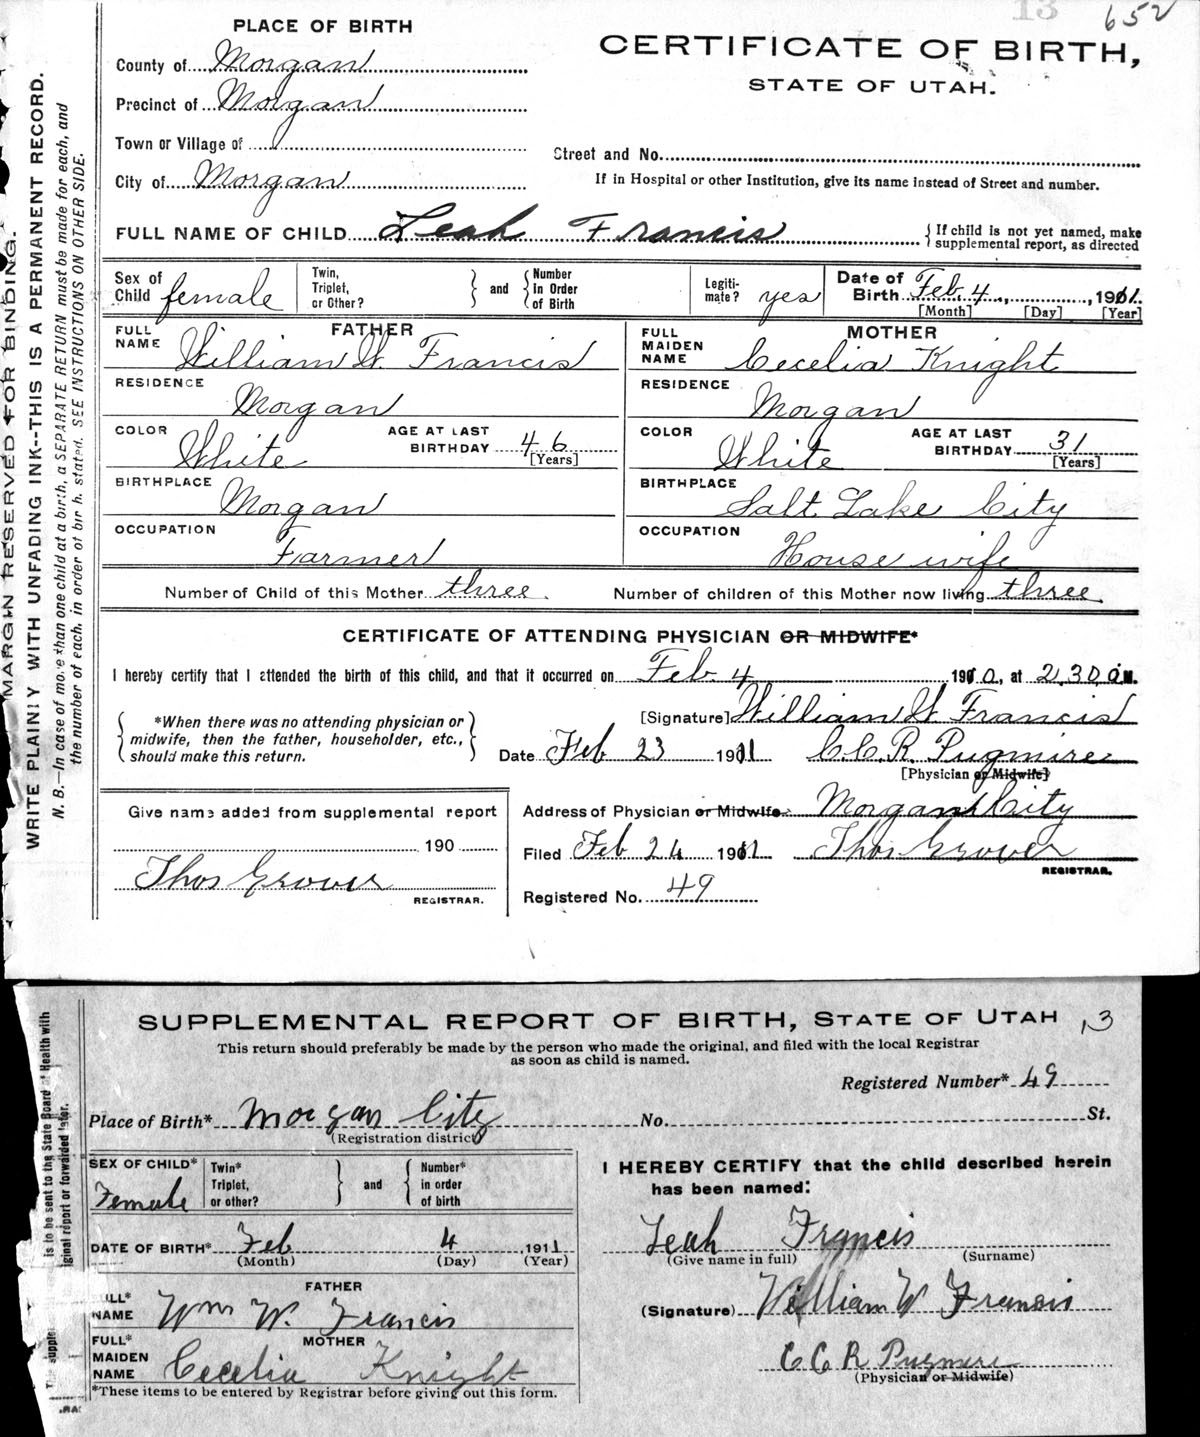 13 652
PLACE OF BIRTH
CERTIFICATE OF BIRTH,
STATE OF UTAH.
County of Morgan
Precinct of Morgan
Town or Village of
Street and No.
City of Morgan
If in Hospital or other Institution, give its name instead of Street and number.
FULL NAME OF CHILD Leah Francis
{If child is not yet named, make
supplemental report, as directed
Sex of Child female
Twin, Triplet, or Other? } and { Number In Order of Birth
Legiti-mate? yes
Date of Birth Feb. 4, 1911.
[Month] [Day] [Year]
FATHER
FULL NAME William W. Francis
MOTHER
FULL MAIDEN NAME Cecelia Knight
RESIDENCE Morgan
RESIDENCE Morgan
COLOR White AGE AT LAST BIRTHDAY 46 [Years]
COLOR White AGE AT LAST BIRTHDAY 31 [Years]
BIRTHPLACE Morgan
BIRTHPLACE Salt Lake City
OCCUPATION Farmer
OCCUPATION House wife
Number of Child of this Mother three. Number of children of this Mother now living three.
CERTIFICATE OF ATTENDING PHYSICIAN OR MIDWIFE*
I hereby certify that I attended the birth of this child, and that it occurred on Feb 4 1910, at 2.30 a.M.
{*When there was no attending physician or
midwife, then the father, householder, etc.,
should make this return.}
[Signature] William W. Francis
Date Feb 23 1911 C.C.R. Pugmire
[Physician or Midwife]
Give name added from supplemental report
190
Thos Grover
REGISTRAR.
Address of Physician or Midwife Morgan City
Filed Feb 24 1911 Thos Grover
REGISTRAR.
Registered No. 49
MARGIN RESERVED FOR BINDING.
WRITE PLAINLY WITH UNFADING INK--THIS IS A PERMANENT RECORD.
N. B.—In case of more than one child at a birth, a SEPARATE RETURN must be made for each, and
the number of each, in order of birth, stated. SEE INSTRUCTIONS ON OTHER SIDE.
SUPPLEMENTAL REPORT OF BIRTH, STATE OF UTAH 13
This return should preferably be made by the person who made the original, and filed with the local Registrar
as soon as child is named.
Registered Number* 49
Place of Birth* Morgan City No. St.
(Registration district)
SEX OF CHILD* Female
Twin* Triplet, or other? } and { Number* in order of birth
DATE OF BIRTH* Feb 4 1911
(Month) (Day) (Year)
FATHER
ULL* NAME Wm W. Francis
MOTHER
FULL* MAIDEN NAME Cecelia Knight
*These items to be entered by Registrar before giving out this form.
I HEREBY CERTIFY that the child described herein
has been named:
Leah Francis
(Give name in full) (Surname)
(Signature) William W Francis
C C R Pugmire
(Physician or Midwife)
is to be sent to the State Board of Health with
ginal report or forwarded later.